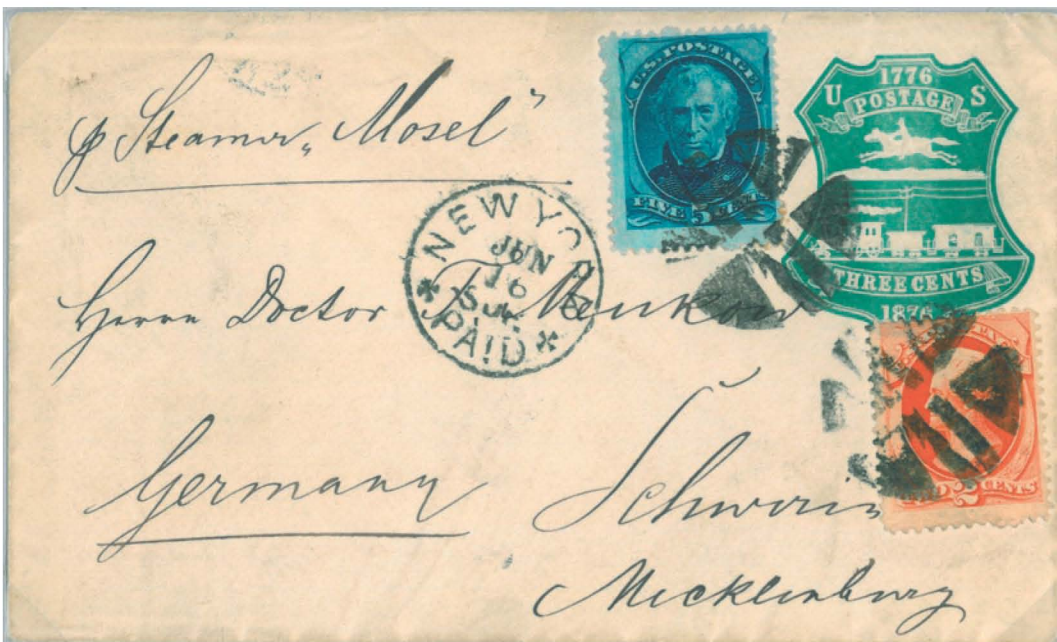 p Steamer „Mosel“
U.S. POSTAGE
FIVE 5 CENTS
1776
U POSTAGE S
THREE CENTS
1876
NEW YORK
JUN
16
PAID
Herrn Doctor
Germany
Schwerin
Mecklenburg
2 CENTS